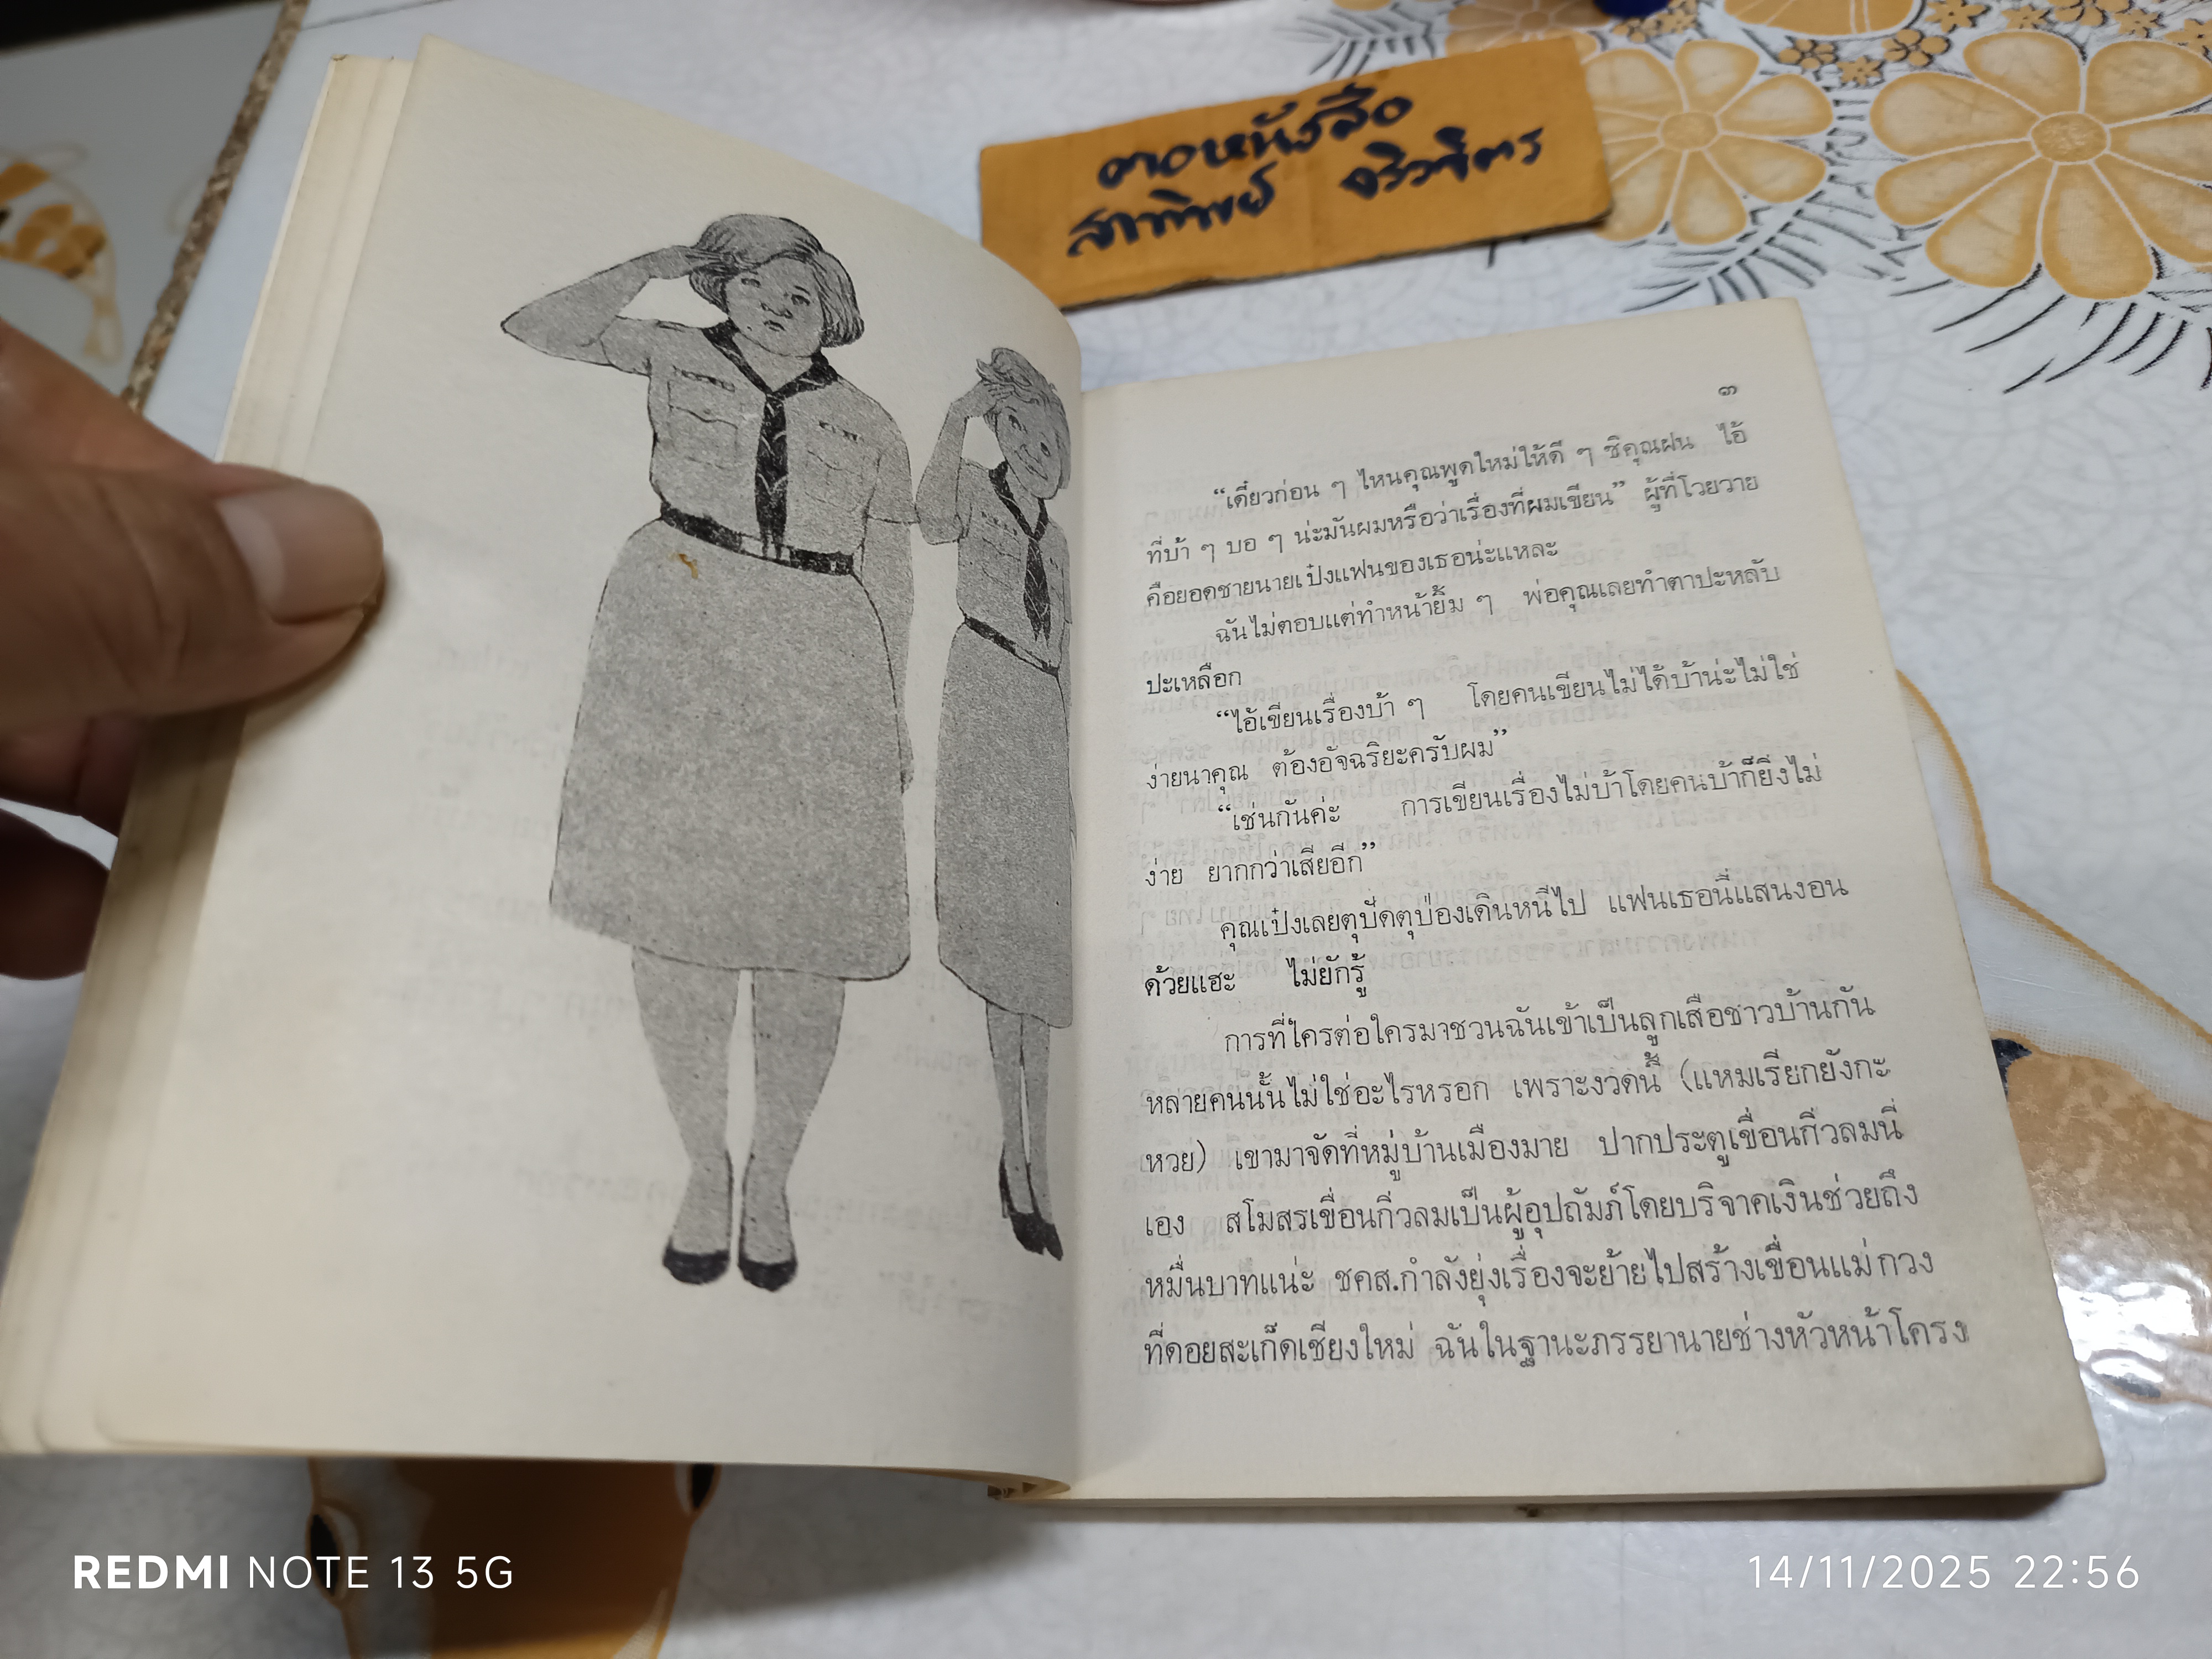 ตอหนังสือ
สาทิพย์ จริวจิตร
๓
“เดี๋ยวก่อน ๆ ไหนคุณพูดใหม่ให้ดี ๆ ซิคุณฝน ไอ้
ที่บ้า ๆ บอ ๆ น่ะมันผมหรือว่าเรื่องที่ผมเขียน” ผู้ที่โวยวาย
คือยอดชายนายเป๋งแฟนของเธอน่ะแหละ
ฉันไม่ตอบแต่ทำหน้ายิ้ม ๆ พ่อคุณเลยทำตาปะหลับ
ปะเหลือก
“ไอ้เขียนเรื่องบ้า ๆ โดยคนเขียนไม่ได้บ้าน่ะไม่ใช่
ง่ายนาคุณ ต้องอัจฉริยะครับผม”
“เช่นกันค่ะ การเขียนเรื่องไม่บ้าโดยคนบ้าก็ยิ่งไม่
ง่าย ยากกว่าเสียอีก”
คุณเป๋งเลยตุปัดตุป่องเดินหนีไป แฟนเธอนี่แสนงอน
ด้วยแฮะ ไม่ยักรู้
การที่ใครต่อใครมาชวนฉันเข้าเป็นลูกเสือชาวบ้านกัน
หลายคนนั้นไม่ใช่อะไรหรอก เพราะงวดนี้ (แหมเรียกยังกะ
หวย) เขามาจัดที่หมู่บ้านเมืองมาย ปากประตูเขื่อนกิ่วลมนี่
เอง สโมสรเขื่อนกิ่วลมเป็นผู้อุปถัมภ์โดยบริจาคเงินช่วยถึง
หมื่นบาทแน่ะ ชคส.กำลังยุ่งเรื่องจะย้ายไปสร้างเขื่อนแม่กวง
ที่ดอยสะเก็ดเชียงใหม่ ฉันในฐานะภรรยานายช่างหัวหน้าโครง
REDMI NOTE 13 5G
14/11/2025 22:56